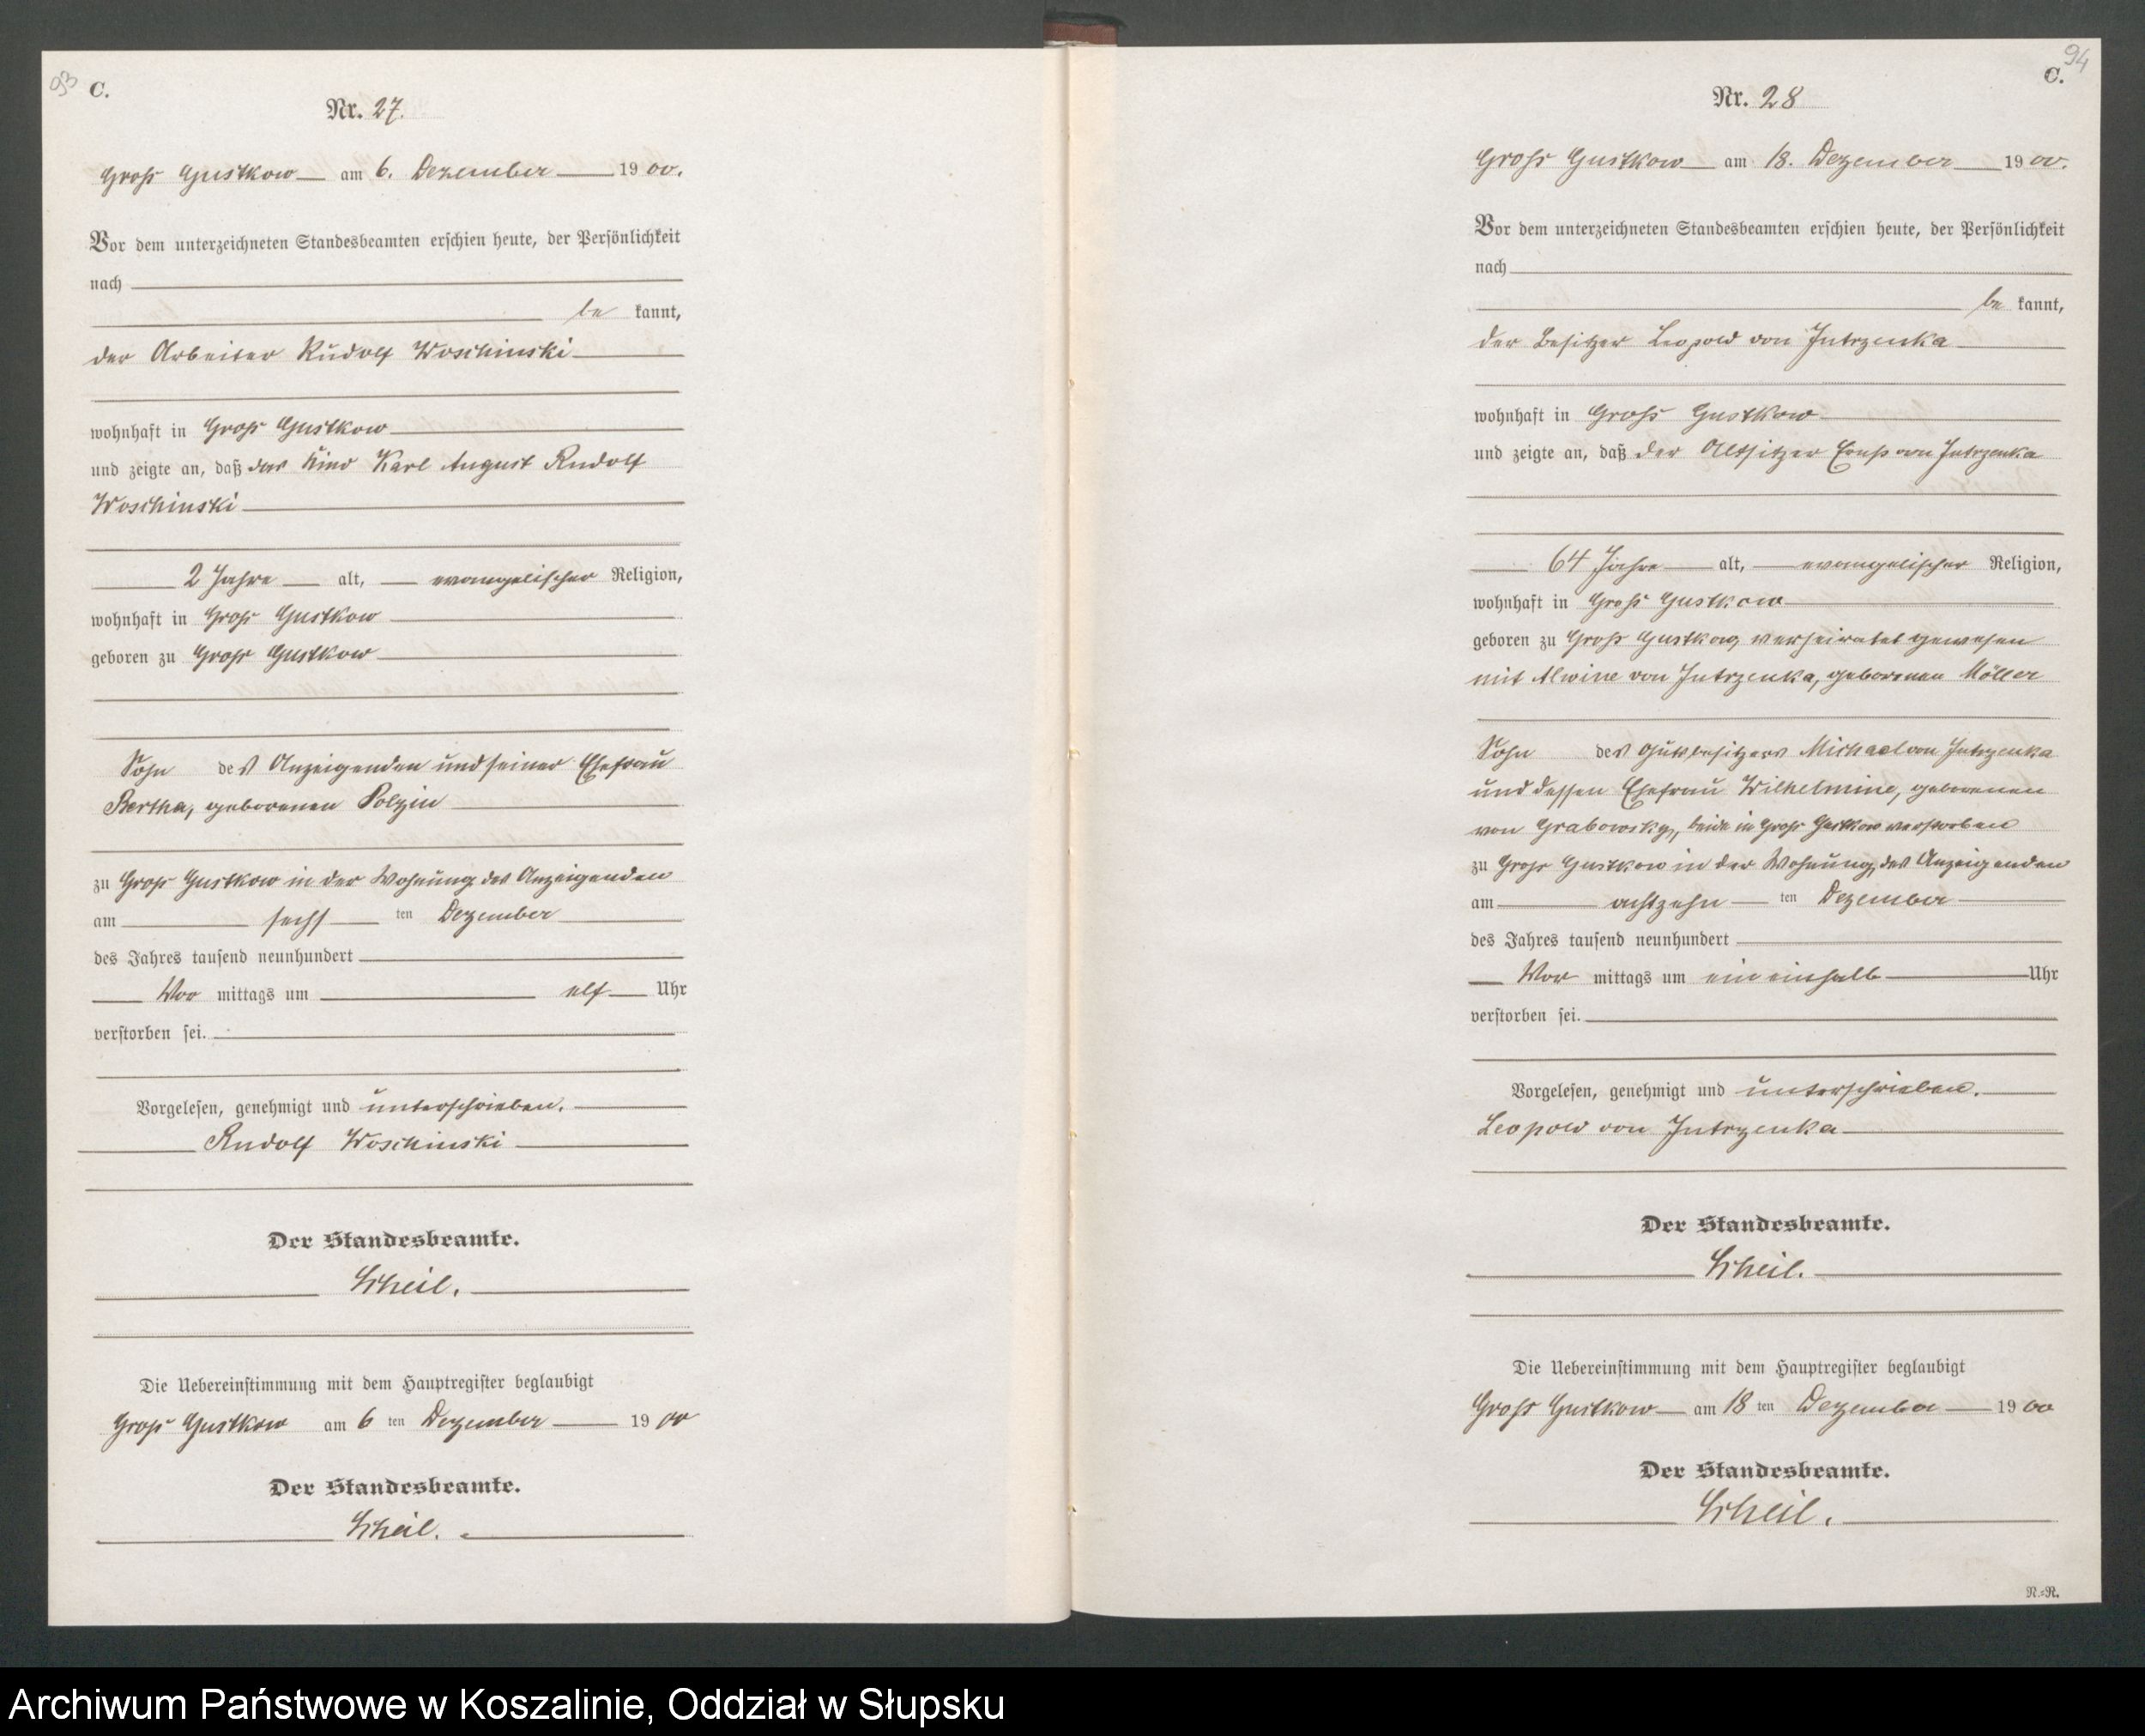 93
C.
Nr. 27.
Groß Gustkow am 6. Dezember 1900.
Vor dem unterzeichneten Standesbeamten erschien heute, der Persönlichkeit
nach
be kannt,
der Arbeiter Rudolf Woschinski
wohnhaft in Groß Gustkow
und zeigte an, daß das Kind Karl August Rudolf
Woschinski
2 Jahre alt, evangelischer Religion,
wohnhaft in Groß Gustkow
geboren zu Groß Gustkow
Sohn des Anzeigenden und seiner Ehefrau
Bertha, geborenen Polzin
zu Groß Gustkow in der Wohnung des Anzeigenden
am sechs ten Dezember
des Jahres tausend neunhundert
Vor mittags um elf Uhr
verstorben sei.
Vorgelesen, genehmigt und unterschrieben.
Rudolf Woschinski
Der Standesbeamte.
Scheil.
Die Uebereinstimmung mit dem Hauptregister beglaubigt
Groß Gustkow am 6 ten Dezember 1900
Der Standesbeamte.
Scheil.
94
C.
Nr. 28
Groß Gustkow am 18. Dezember 1900.
Vor dem unterzeichneten Standesbeamten erschien heute, der Persönlichkeit
nach
be kannt,
der Besitzer Leopold von Jutrzenka
wohnhaft in Groß Gustkow
und zeigte an, daß der Altsitzer Ernst von Jutrzenka
64 Jahre alt, evangelischer Religion,
wohnhaft in Groß Gustkow
geboren zu Groß Gustkow, verheiratet gewesen
mit Alwine von Jutrzenka, geborenen Möller
Sohn des Gutsbesitzers Michael von Jutrzenka
und dessen Ehefrau Wilhelmine, geborenen
von Grabowsky, beide in Groß Gustkow verstorben
zu Groß Gustkow in der Wohnung des Anzeigenden
am achtzehn ten Dezember
des Jahres tausend neunhundert
Vor mittags um ein einhalb Uhr
verstorben sei.
Vorgelesen, genehmigt und unterschrieben.
Leopold von Jutrzenka
Der Standesbeamte.
Scheil.
Die Uebereinstimmung mit dem Hauptregister beglaubigt
Groß Gustkow am 18 ten Dezember 1900
Der Standesbeamte.
Scheil.
N.=R.
Archiwum Państwowe w Koszalinie, Oddział w Słupsku